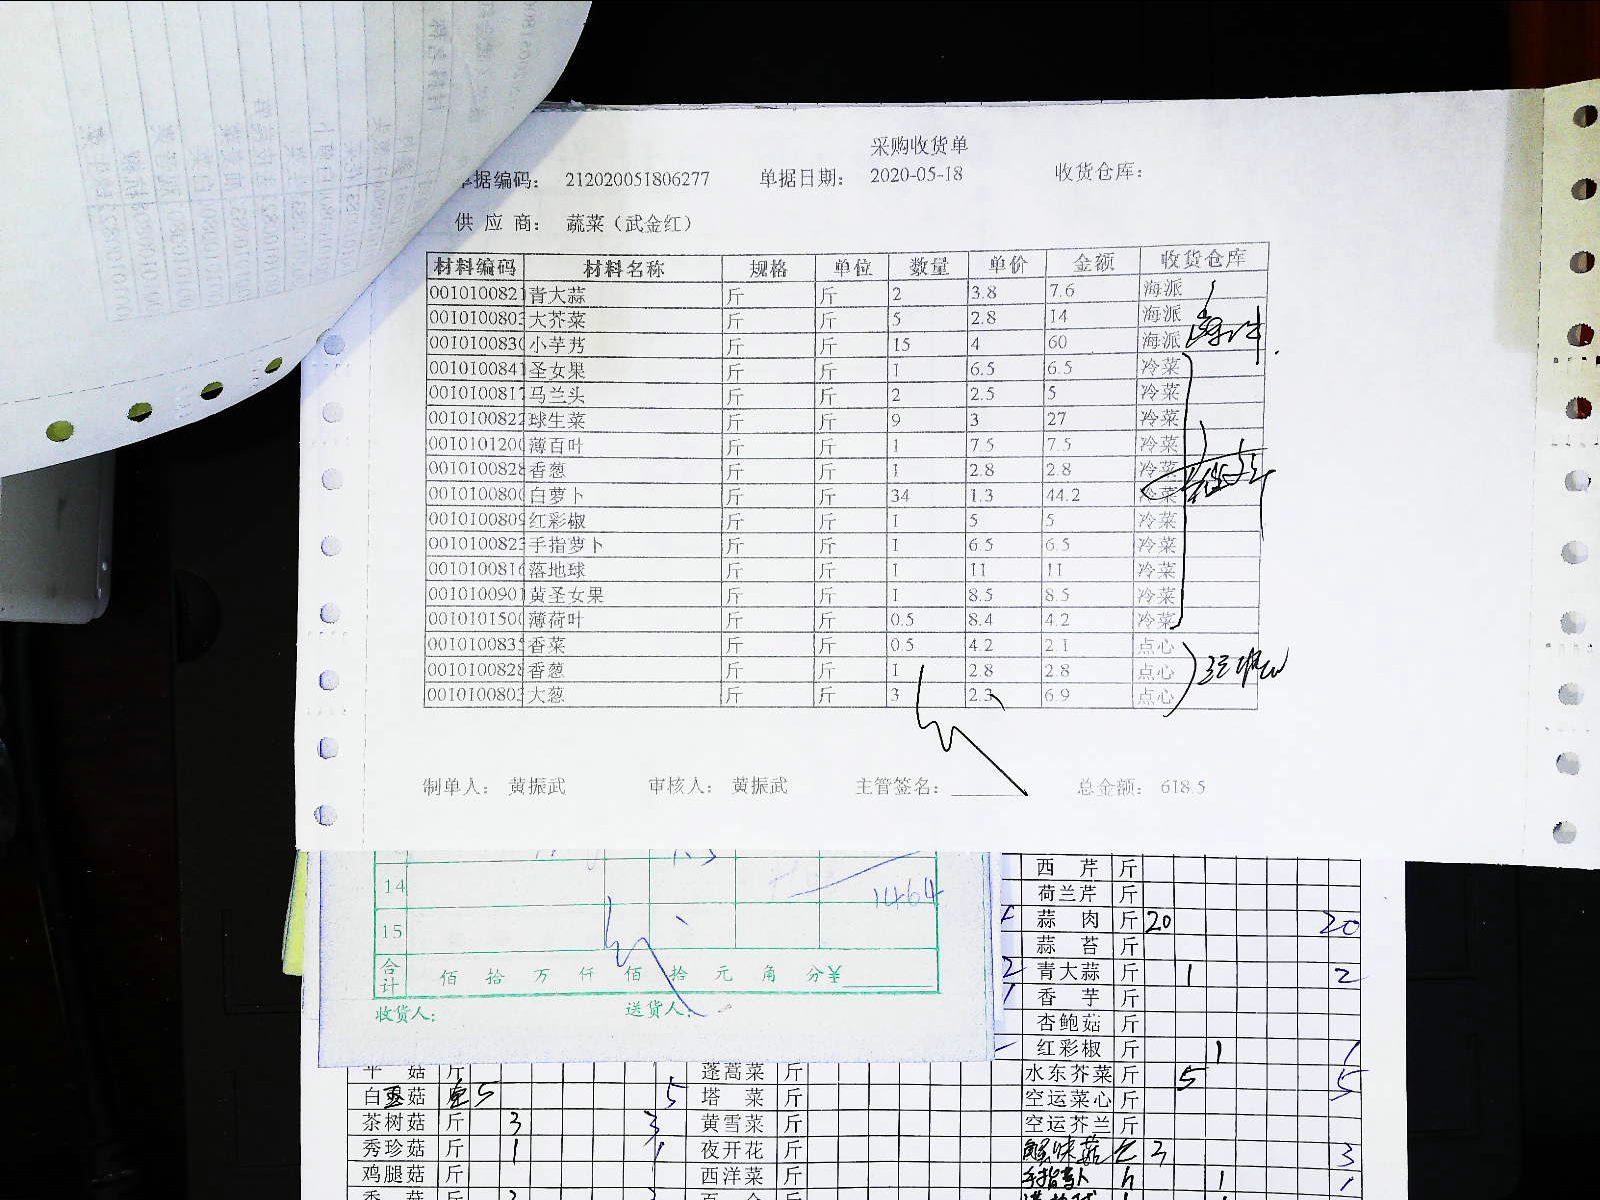 采购收货单
单据编码： 212020051806277 单据日期： 2020-05-18 收货仓库：
供 应 商： 蔬菜（武金红）
材料编码 材料名称 规格 单位 数量 单价 金额 收货仓库
0010100821 青大蒜 斤 斤 2 3.8 7.6 海派
0010100803 大芥菜 斤 斤 5 2.8 14 海派
0010100830 小芋艿 斤 斤 15 4 60 海派
0010100841 圣女果 斤 斤 1 6.5 6.5 冷菜
0010100817 马兰头 斤 斤 2 2.5 5 冷菜
0010100822 球生菜 斤 斤 9 3 27 冷菜
0010101200 薄百叶 斤 斤 1 7.5 7.5 冷菜
0010100828 香葱 斤 斤 1 2.8 2.8 冷菜
0010100800 白萝卜 斤 斤 34 1.3 44.2 冷菜
0010100809 红彩椒 斤 斤 1 5 5 冷菜
0010100823 手指萝卜 斤 斤 1 6.5 6.5 冷菜
0010100816 落地球 斤 斤 1 11 11 冷菜
0010100901 黄圣女果 斤 斤 1 8.5 8.5 冷菜
0010101500 薄荷叶 斤 斤 0.5 8.4 4.2 冷菜
0010100835 香菜 斤 斤 0.5 4.2 2.1 点心
0010100828 香葱 斤 斤 1 2.8 2.8 点心
0010100803 大葱 斤 斤 3 2.3 6.9 点心
制单人： 黄振武 审核人： 黄振武 主管签名： 总金额： 618.5
14 1464
15
合计 佰 拾 万 仟 佰 拾 元 角 分￥
收货人： 送货人：
西 芹 斤
荷兰芹 斤
蒜 肉 斤 20 20
蒜 苔 斤
青大蒜 斤 1 2
香 芋 斤
杏鲍菇 斤
红彩椒 斤 1 1
平 菇 斤 蓬蒿菜 斤 水东芥菜 斤 5 5
白 菇 5 5 塔 菜 斤 空运菜心 斤
茶树菇 斤 3 3 黄雪菜 斤 空运芥兰 斤
秀珍菇 斤 1 1 夜开花 斤 蟹味菇 3 3
鸡腿菇 斤 西洋菜 斤 手指萝卜 1 1